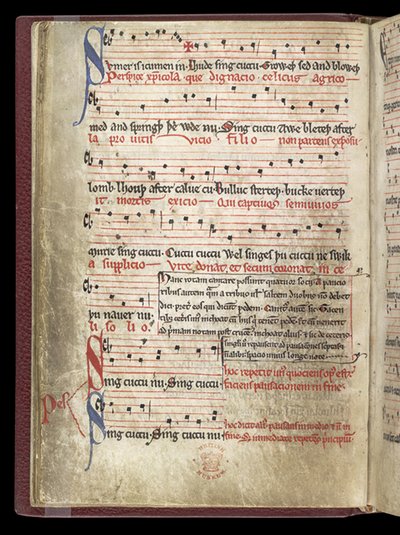 Sumer is icumen in. Lhude sing cuccu. Groweþ sed and bloweþ
Perspice xpicola que dignacio celicus agrico
med and springþ þe wde nu. Sing cuccu Awe bleteþ after
la pro uitis vicio filio non parcens exposu
lomb. lhouþ after calue cu. Bulluc sterteþ. bucke uerteþ
it mortis exicio Qui captiuos semiuiuos
murie sing cuccu. Cuccu cuccu Wel singes þu cuccu ne swik
a supplicio Vite donat et secum coronat in ce
þu nauer nu.
li solio.
Hanc rotam cantare possunt quatuor socii. A paucio
ribus autem quam a tribus uel saltem duobus non debet
dici preter eos qui dicunt pedem. Canitur autem sic. Tacen
tibus ceteris unus inchoat cum hiis qui tenent pedem. Et cum uenerit
ad primam notam post crucem inchoat alius. & sic de ceteris
singuli uero repausent ad pausaciones scriptas
non alibi spacio unius longe note.
Sing cuccu nu. Sing cuccu.
hoc repetit unus quociens opus est
faciens pausacionem in fine.
Pes
Sing cuccu. Sing cuccu nu
hoc dicit alius pausans in medio & non in
fine. Set immediate repetens principium
BRITISH
MUSEUM